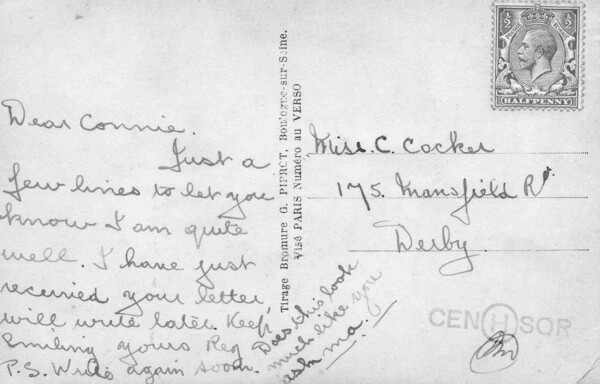 Dear Connie.
Just a
few lines to let you
know I am quite
well. I have just
received your letter,
will write later. Keep
Smiling yours Reg
P.S. Write again soon.
Does this look
much like you
ask ma.
Tirage Bromure G. PIPRCT, Boulogne-sur-Seine.
Visé PARIS Numéro au VERSO
½ ½
HALFPENNY
Miss. C. Cocker
175. Mansfield Rd.
Derby.
CEN H SOR